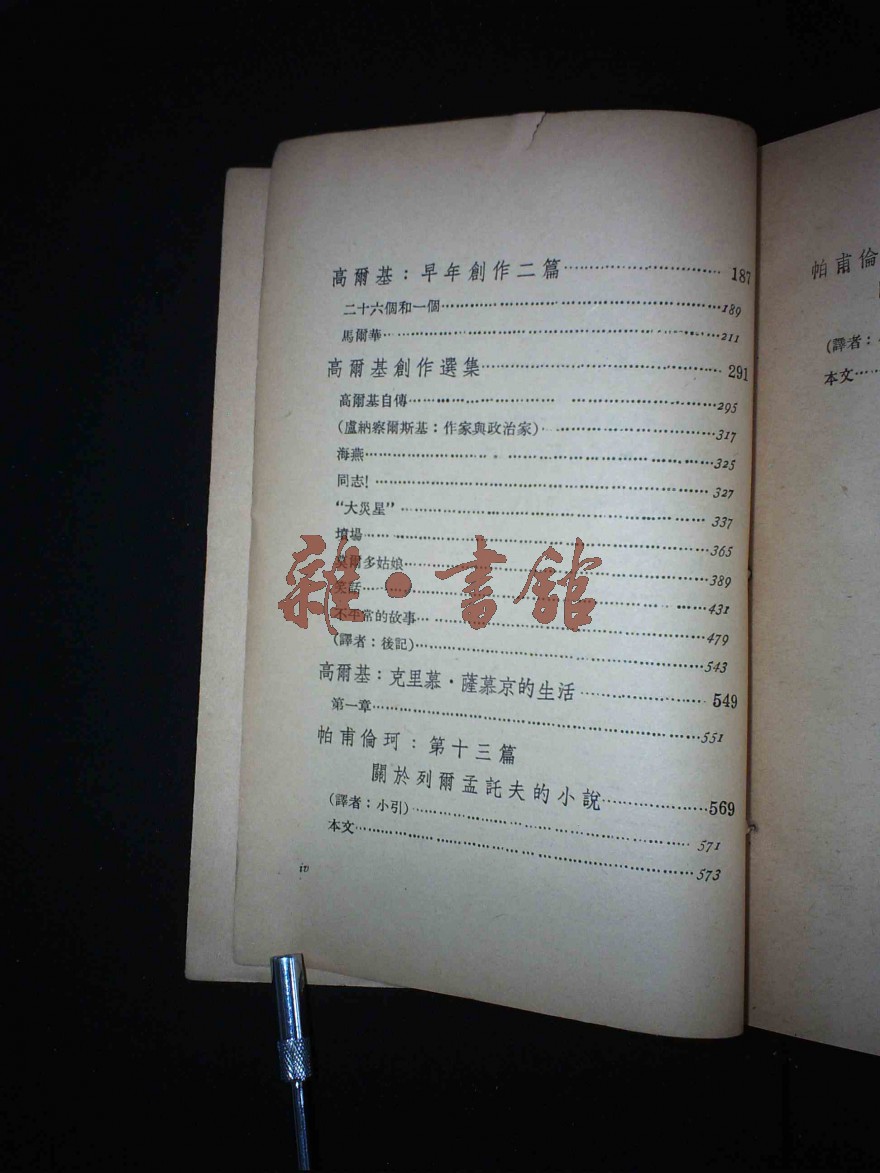 高爾基：早年創作二篇……187
二十六個和一個……189
馬爾華……211
高爾基創作選集……291
高爾基自傳……295
(盧納察爾斯基：作家與政治家)……317
海燕……325
同志!……327
“大災星”……337
墳場……365
莫爾多姑娘……389
笑話……431
不平常的故事……479
(譯者：後記)……543
高爾基：克里慕·薩慕京的生活……549
第一章……551
帕甫倫珂：第十三篇
關於列爾孟託夫的小說……569
(譯者：小引)……571
本文……573
iv
雜·書館
帕甫倫
(譯者：
本文……